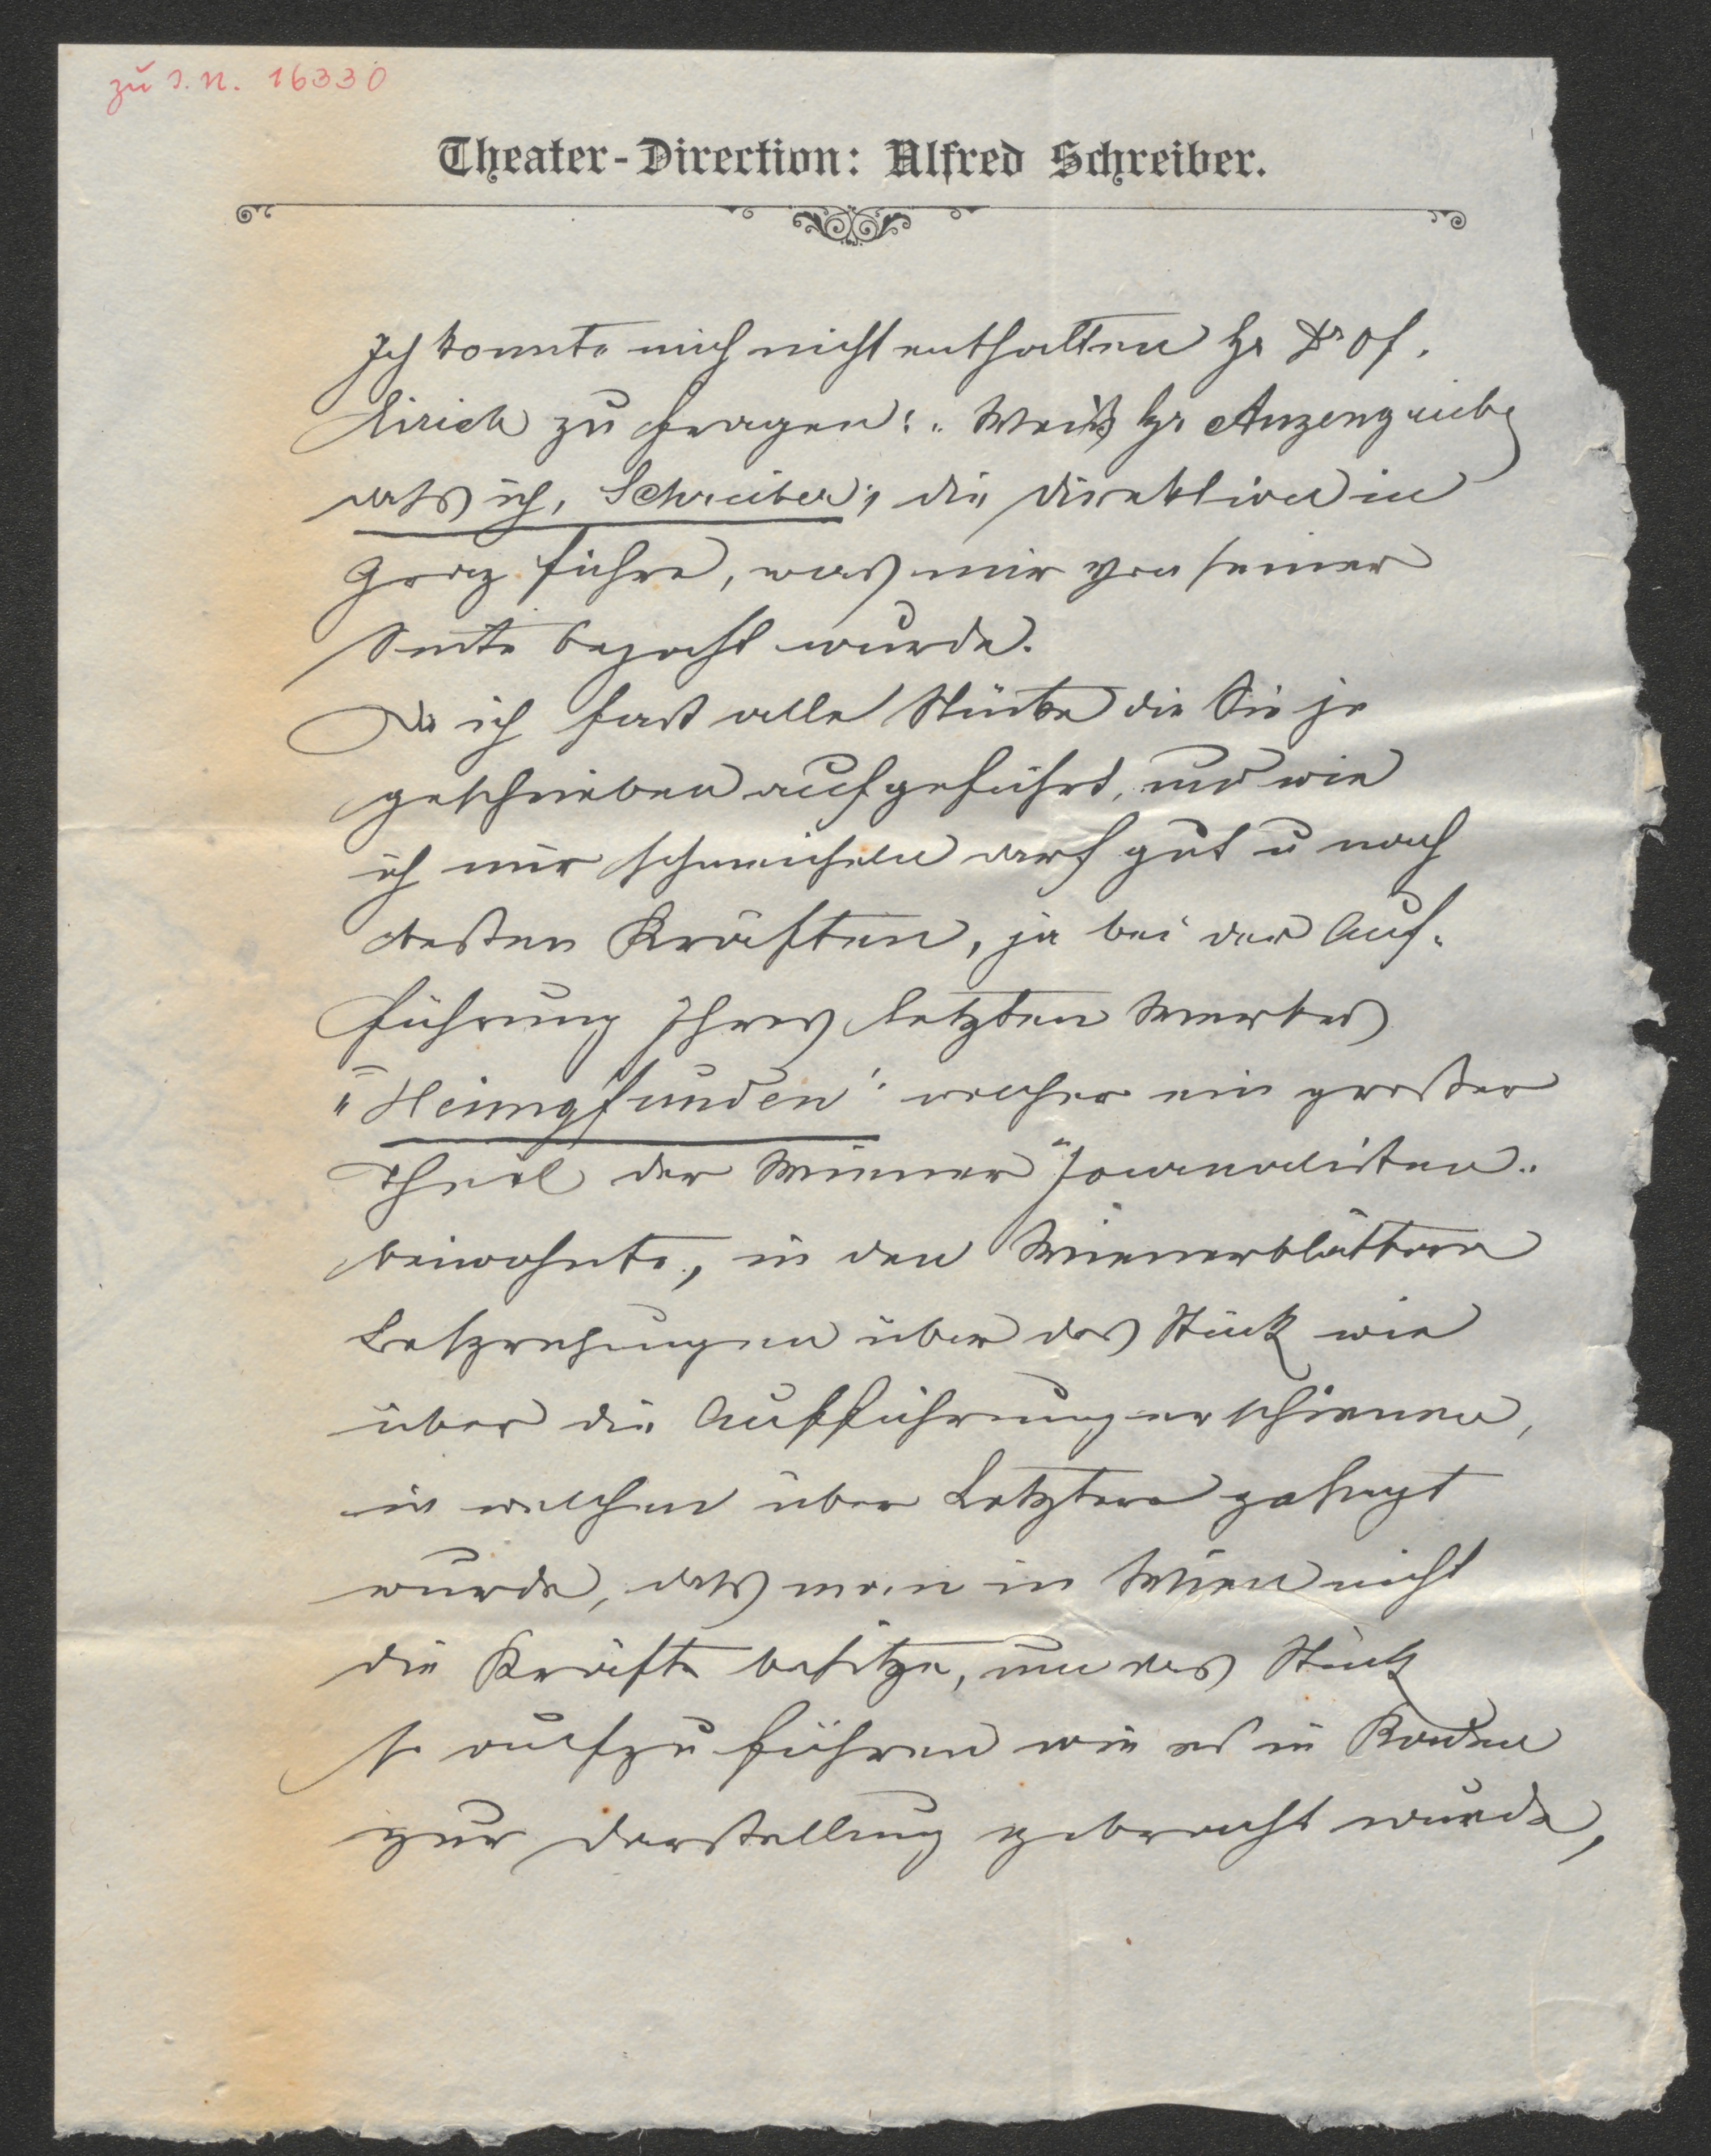 zu I.N. 16330
Theater-Direction: Alfred Schreiber.
Ich konnte mich nicht enthalten Hr Dr Of.
Eirich zu fragen: „Weiß Hr Anzengruber
daß ich, Schreiber, die Direktion in
Graz führe, was mir von seiner
Seite bejaht wurde.
Da ich fast alle Stücke die Sie je
geschrieben aufgeführt, und wie
ich mir schmeicheln darf gut u nach
besten Kräften, ja bei der Auf-
führung Ihres letzten Werkes
„Heimgfunden" welcher ein großer
Theil der Wiener Journalisten
beiwohnte, in den Wienerblättern
Besprechungen über das Stück wie
über die Aufführung erschienen,
in welchen über Letztere gesagt
wurde, daß man in Wien nicht
die Kräfte besitze, um das Stück
so aufzuführen wie es in Baden
zur Darstellung gebracht wurde,